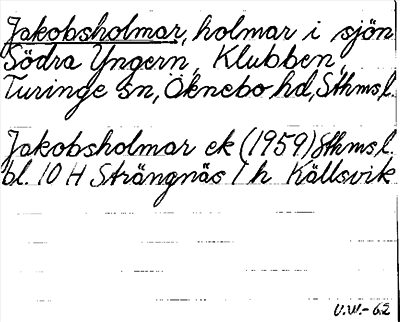 Jakobsholmar, holmar i sjön
Södra Yngern, Klubben,
Turinge sn, Öknebo hd, Sthms l.
Jakobsholmar ek (1959) Sthms l.
bl. 10 H Strängnäs 1 h Källsvik
U.W.-62